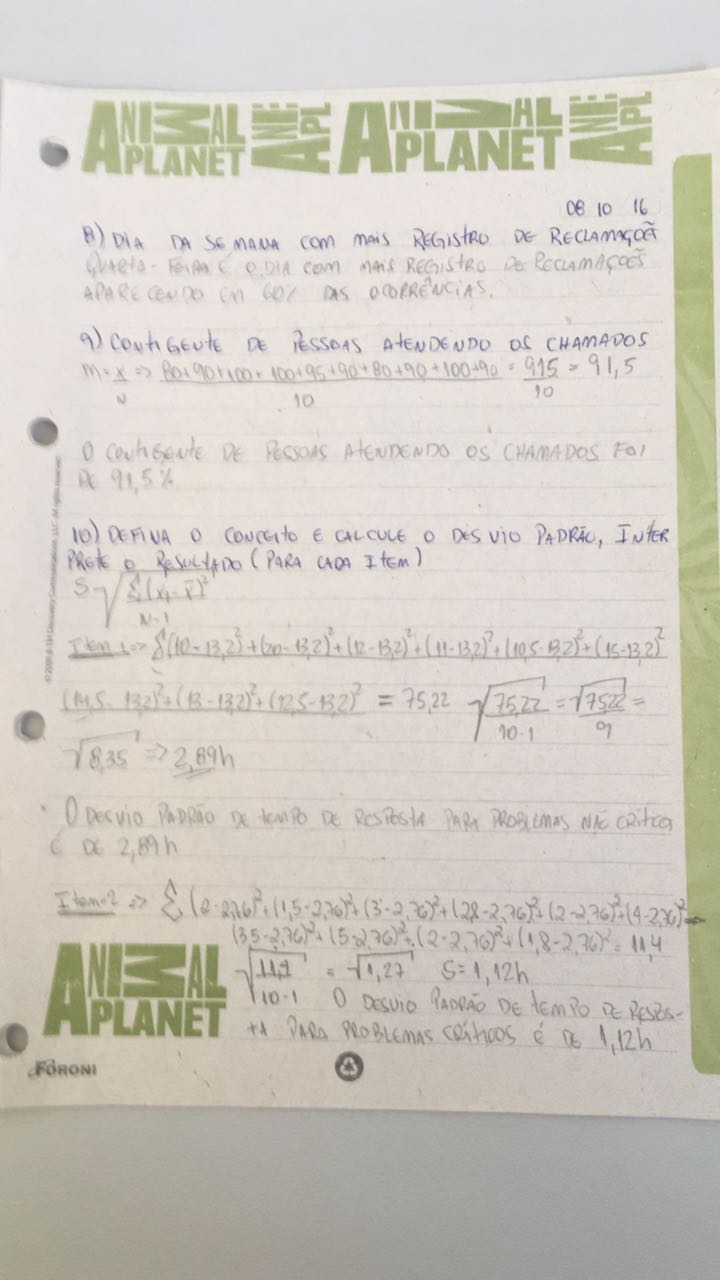 ANIMAL PLANET ANI APL ANIMAL PLANET ANI APL
08 10 16
8) DIA DA SEMANA COM MAIS REGISTRO DE RECLAMAÇÕE
QUARTA-FEIRA É O DIA COM MAIS REGISTRO DE RECLAMAÇÕES
APARECENDO EM 60% DAS OCORRÊNCIAS.
9) CONTIGENTE DE PESSOAS ATENDENDO OS CHAMADOS
M = X/N => 80+90+100+100+95+90+80+90+100+90/10 = 915/10 = 91,5
O CONTIGENTE DE PESSOAS ATENDENDO OS CHAMADOS FOI
DE 91,5%
10) DEFINA O CONCEITO E CALCULE O DESVIO PADRÃO, INTER
PRETE O RESULTADO (PARA CADA ITEM)
S √Σ(xi-x̄)²/N-1
Item 1 => Σ(10-13,2)²+(20-13,2)²+(12-13,2)²+(11-13,2)²+(10,5-13,2)²+(15-13,2)²
(14,5-13,2)²+(13-13,2)²+(12,5-13,2)² = 75,22 √75,22/10-1 = √75,22/9 =
√8,35 => 2,89h
O DESVIO PADRÃO DE TEMPO DE RESPOSTA PARA PROBLEMAS NÃO CRÍTICO
É DE 2,89h
Item-2 => Σ(2-2,76)²+(1,5-2,76)²+(3-2,76)²+(2,8-2,76)²+(2-2,76)²+(4-2,76)²
(3,5-2,76)²+(5-2,76)²+(2-2,76)²+(1,8-2,76)² = 11,4
√11,4/10-1 = √1,27 S=1,12h
O DESVIO PADRÃO DE TEMPO DE RESPOS-
TA PARA PROBLEMAS CRÍTICOS É DE 1,12h
ANIMAL PLANET
FORONI